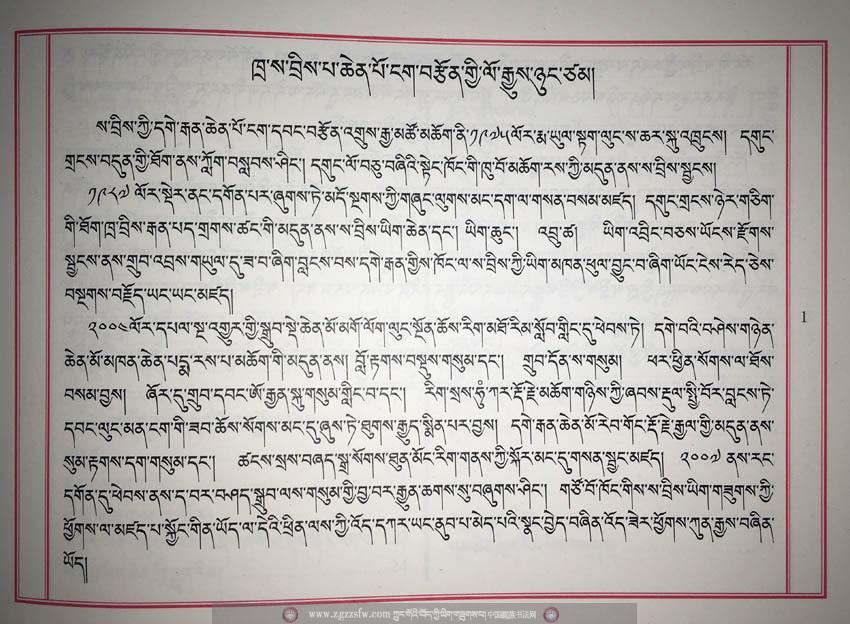 ཁྲ་ས་བྲིས་པ་ཆེན་པོ་ངག་བརྩོན་གྱི་ལོ་རྒྱུས་ཉུང་ཙམ།
ས་བྲིས་ཀྱི་དགེ་རྒན་ཆེན་པོ་ངག་དབང་བརྩོན་འགྲུས་རྒྱ་མཚོ་མཆོག་ནི་༡༩༧༥ལོར་རྨ་ཡུལ་སྟག་ལུང་ས་ཆར་སྐུ་འཁྲུངས། དགུང་
གྲངས་བདུན་གྱི་ཐོག་ནས་ཀློག་བསླབས་ཤིང་། དགུང་ལོ་བཅུ་བཞིའི་སྟེང་ཁོང་གི་ཁུ་བོ་མཆོག་རས་ཀྱི་མདུན་ནས་ས་བྲིས་སྦྱངས།
༡༩༨༧ ལོར་སྡེར་ནང་དགོན་པར་ཞུགས་ཏེ་མདོ་སྔགས་ཀྱི་གཞུང་ལུགས་མང་དག་ལ་གསན་བསམ་མཛད། དགུང་གྲངས་ཉེར་གཅིག་
གི་ཐོག་ཁྲ་བྲིས་རྒན་པད་གྲགས་ཚང་གི་མདུན་ནས་ས་བྲིས་ཡིག་ཆེན་དང་། ཡིག་ཆུང་། འབྲུ་ཚ། ཡིག་འབྲིང་བཅས་ཡོངས་རྫོགས་
སྦྱངས་ནས་གྲུབ་འབྲས་གཡུལ་དུ་ཟ་བ་ཞིག་བླངས་བས་དགེ་རྒན་གྱིས་ཁོང་ལ་ས་བྲིས་ཀྱི་ཡིག་མཁན་ཕུལ་བྱུང་བ་ཞིག་ཡོང་ངེས་རེད་ཅེས་
བསྔགས་བརྗོད་ཡང་ཡང་མཛད།
༢༠༠༤ལོར་དཔལ་སྔ་འགྱུར་གྱི་སྒྲུབ་སྡེ་ཆེན་མོ་མགོ་ལོག་ལུང་སྔོན་ཆོས་རིག་མཐོ་རིམ་སློབ་གླིང་དུ་ཕེབས་ཏེ། དགེ་བའི་བཤེས་གཉེན་
ཆེན་མོ་མཁན་ཆེན་པདྨ་རས་པ་མཆོག་གི་མདུན་ནས། བློ་རྟགས་བསྡུས་གསུམ་དང་། གྲུབ་དོན་ས་གསུམ། ཕར་ཕྱིན་སོགས་ལ་ཐོས་
བསམ་བྱས། ཞོར་དུ་གྲུབ་དབང་ཨོ་རྒྱན་སྐུ་གསུམ་གླིང་བ་དང་། རིག་སྲས་ཧཱུྃ་ཀར་རྡོ་རྗེ་མཆོག་གཉིས་ཀྱི་ཞབས་རྡུལ་སྤྱི་བོར་བླངས་ཏེ་
དབང་ལུང་མན་ངག་གི་ཟབ་ཆོས་སོགས་མང་དུ་ཞུས་ཏེ་ཐུགས་རྒྱུད་སྨིན་པར་བྱས། དགེ་རྒན་ཆེན་མོ་རེབ་གོང་རྡོ་རྗེ་རྒྱལ་གྱི་མདུན་ནས་
སུམ་རྟགས་དག་གསུམ་དང་། ཚངས་སྲས་བཞད་སྒྲ་སོགས་ཐུན་མོང་རིག་གནས་ཀྱི་སྐོར་མང་དུ་གསན་སྦྱང་མཛད། ༢༠༠༧ ནས་རང་
དགོན་དུ་ཕེབས་ནས་ད་བར་བཤད་སྒྲུབ་ལས་གསུམ་གྱི་བྱ་བར་རྒྱུན་ཆགས་སུ་བཞུགས་ཤིང་། གཙོ་བོ་ཁོང་གིས་ས་བྲིས་ཡིག་གཟུགས་ཀྱི་
ཕྱོགས་ལ་མཛད་པ་སྐྱོང་གིན་ཡོད་ལ་དེའི་ཕྲིན་ལས་ཀྱི་འོད་དཀར་ཡང་ནུབ་པ་མེད་པའི་སྣང་བྱེད་བཞིན་འོད་ཟེར་ཕྱོགས་ཀུན་རྒྱས་བཞིན་
ཡོད།
1
www.zgzzsfw.com ཀྲུང་གོའི་བོད་ཀྱི་ཡིག་གཟུགས་དྲ། 中国藏族书法网